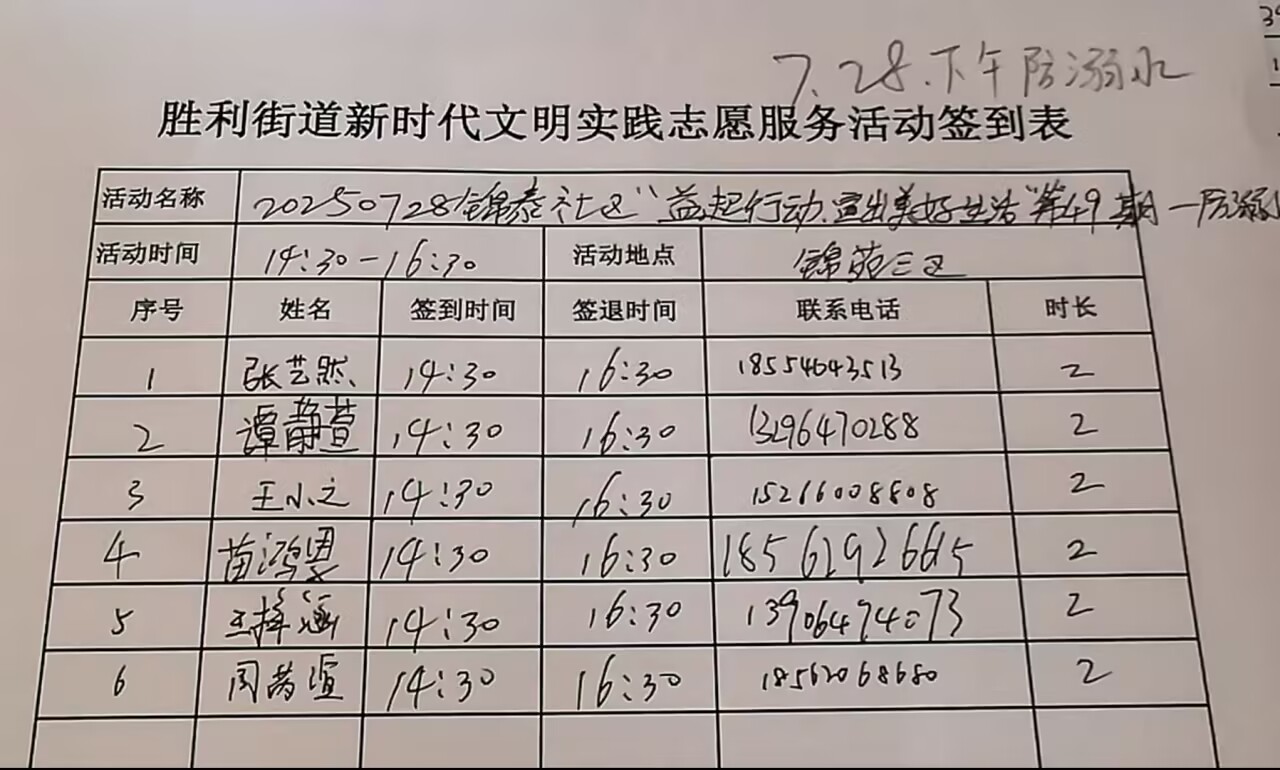 7.28.下午防溺水
胜利街道新时代文明实践志愿服务活动签到表
活动名称 20250728锦泰社区"益起行动、宣出美好生活"第49期—防溺
活动时间 14:30-16:30 活动地点 锦苑三区
序号 姓名 签到时间 签退时间 联系电话 时长
1 张艺然 14:30 16:30 18554643513 2
2 谭静萱 14:30 16:30 13296470288 2
3 王小之 14:30 16:30 15266008808 2
4 苗鸿恩 14:30 16:30 18561926615 2
5 王梓涵 14:30 16:30 13906474073 2
6 周芮 14:30 16:30 18562068680 2